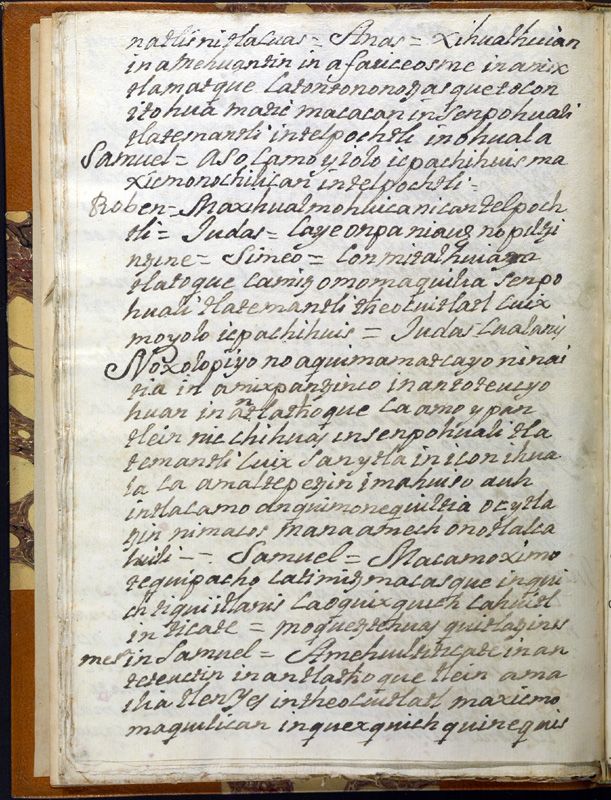 natlis nitlacuas = Anas = xihualhuian
in amehuantin in afauceosme in amix
tlamatque Catontononotzasque tocon
itohua matic macacan in senpohuali
tlatemantli intelpochtli inohuala
Samuel = Aso Camo yiolo icpachihuis ma
xicmonochilican in telpochtli =
Roben = Maxihualmohuica nican telpoch
tli = Judas = Caye onpa niauh nopiltzi
ntzine = Simeo = Conmitalhuia
tlatoque Camitzomomaquilia senpo
huali tlatemantli theocuitlatl Cuix
moyolo icpachihuis = Judas Cualanis
Noxolopiyo no aquimamatcayo ninai
tia in amixpantzinco in antoteucyo
huan in antlathoque Ca amo ypan
tlein nicchihuas insenpohuali tla
temantli Cuix San ytla in iconihua
la Ca amaltepetzin imahuiso auh
intlacamo anquimonequiltia ocytla
tzin nimacos mana amech onotlalca
huili -- Samuel = Macamoximo
tequipacho Catimitzmacasque inqui
chtiquitlanis Caoquixquich Cahuitl
in ticate = moquetztehuas quitlatzinis
mesa in Samuel = Amehuiltiticate in an
teteuctin in antlathoque tlein ama
ilia tlen yes intheocuitlatl maxicmo
maquilican inquexquich quinequis